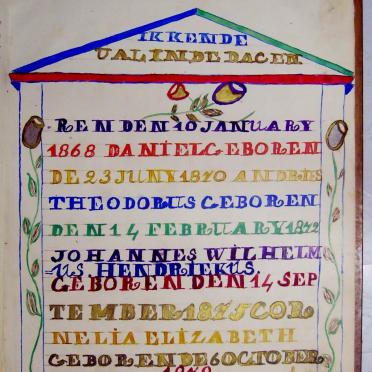 IK KENDE
U AL IN DE DAGEN
REN DEN 10 JANUARY
1868 DANIEL GEBOREN
DE 23 JUNY 1870 ANDRIES
THEODORUS GEBOREN
DEN 14 FEBRUARY 1872
JOHANNES WILHELM
US HENDRIEKUS
GEBOREN DEN 14 SEP
TEMBER 1875 COR
NELIA ELIZABETH
GEBOREN DE 6 OCTOBER